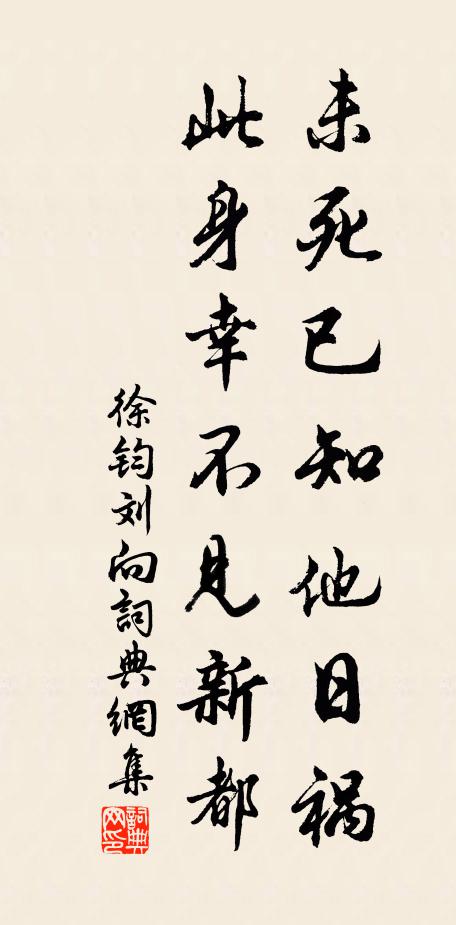 未死已知他日祸
此身幸不见新都
徐钧刘向詞典網集
詞典网印